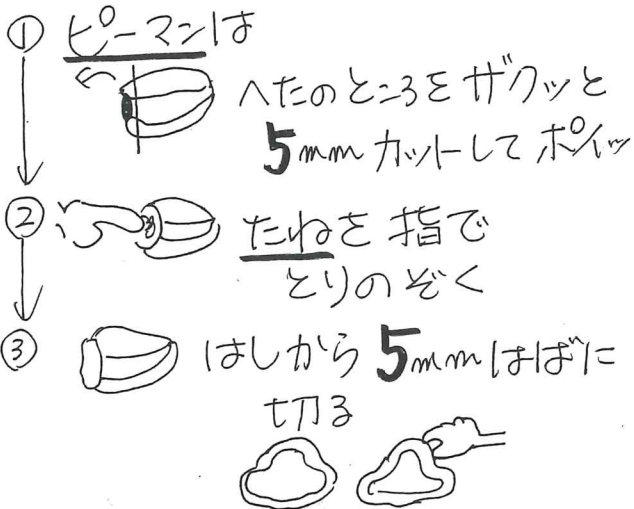 ① ピーマンは
へたのところをザクッと
5mmカットしてポイッ
② たねを指で
とりのぞく
③ はしから5mmはばに
切る